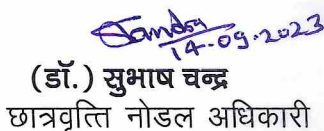 14-09-2023
(डॉ.) सुभाष चन्द्र
छात्रवृत्ति नोडल अधिकारी